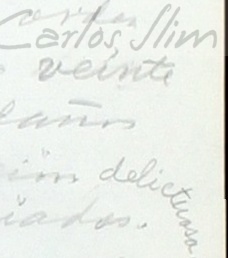 orden
Carlos, Slim
veinte
años
ión delictuosa
iados.